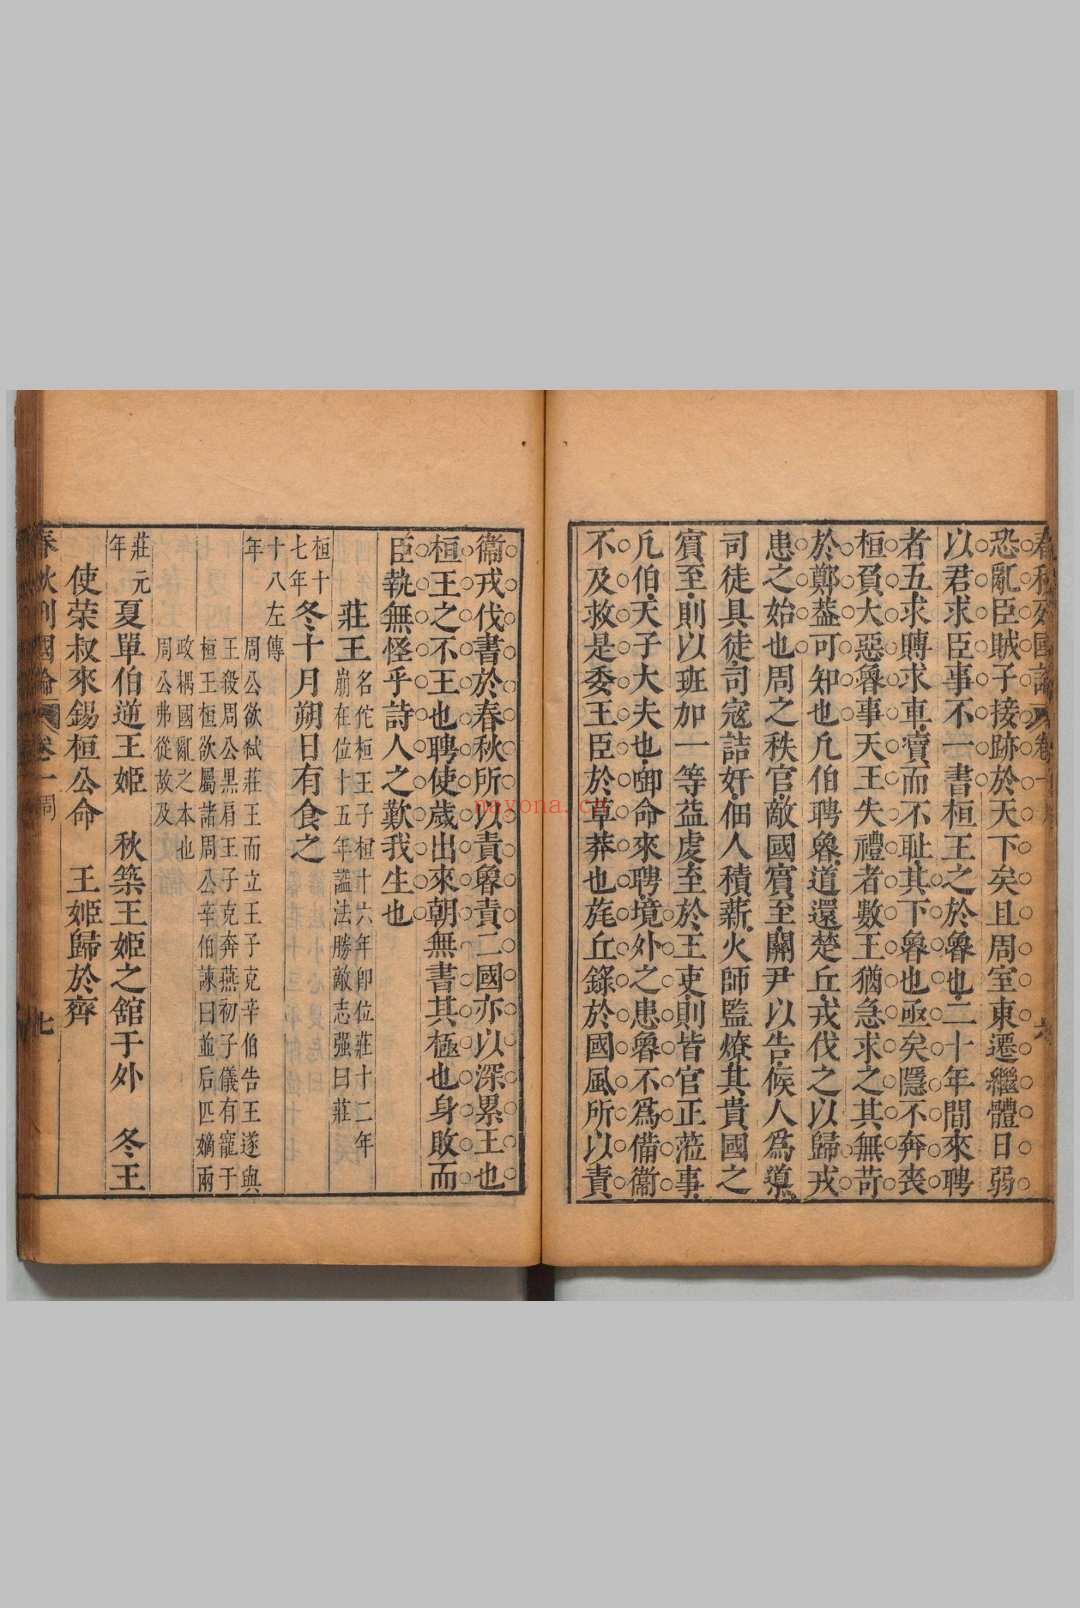 春秋列國論 卷一 六
恐亂臣賊子接跡於天下矣且周室東遷繼體日弱
以君求臣事不一書桓王之於魯也二十年間來聘
者五求賻求車瀆而不耻其下魯也亟矣隱不奔喪
桓負大惡魯事天王失禮者數王猶急求之其無苛
於鄭葢可知也凢伯聘魯道還楚丘戎伐之以歸戎
患之始也周之秩官敵國賓至關尹以告候人爲導
司徒具徒司寇詰奸佃人積薪火師監燎其貴國之
賓至則以班加一等益虔至於王吏則皆官正蒞事
凢伯天子大夫也卸命來聘境外之患魯不爲備衞
不及救是委王臣於草莽也旄丘錄於國風所以責
衞戎伐書於春秋所以責魯責二國亦以深累王也
桓王之不王也聘使歲出來朝無書其極也身敗而
臣執無怪乎詩人之歎我生也
莊王 名佗桓王子桓十六年卽位莊十二年
崩在位十五年謚法勝敵志强曰莊
桓十七年 冬十月朔日有食之
十八年 左傳 周公欲弑莊王而立王子克辛伯告王遂與
王殺周公黑肩王子克奔燕初子儀有寵于
桓王桓欲屬諸周公辛伯諫曰並后匹嫡兩
政耦國亂之本也
周公弗從故及
莊元年 夏單伯逆王姬 秋築王姬之舘于外 冬王
使荣叔來錫桓公命 王姬歸於齊
春秋列國論 卷一 周 七
nayona.cn